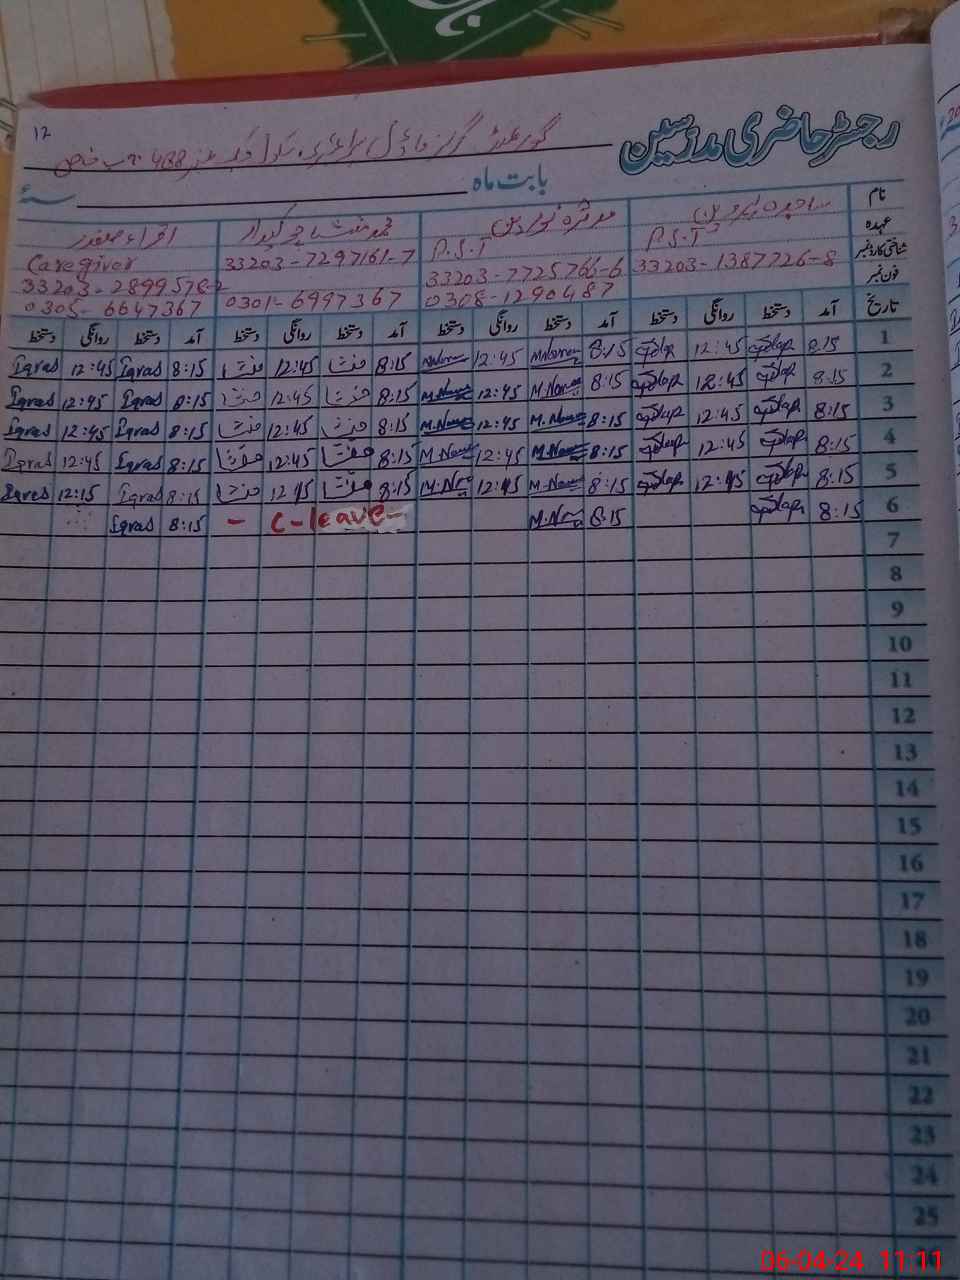 12
رجسٹر حاضری مدرسین
گورنمنٹ گرلز ماڈل پرائمری سکول چک نمبر 488 ج ب
بابت ماہ سنۂ
نام ساجدہ پروین مدثرہ نورین محمد منشا چوکیدار اقراء صفدر
عہدہ P.S.T P.S.T Caregiver
شناختی کارڈ نمبر 33203-1387726-8 33203-7725766-6 33203-7297161-7 33203-2899578-2
فون نمبر 0308-1290487 0301-6997367 0305-6647367
تاریخ آمد دستخط روانگی دستخط آمد دستخط روانگی دستخط آمد دستخط روانگی دستخط آمد دستخط روانگی دستخط
1 8:15 12:45 8:15 12:45 8:15 منشا 12:45 منشا 8:15 Iqraa 12:45 Iqraa
2 8:15 12:45 8:15 12:45 8:15 منشا 12:45 منشا 8:15 Iqraa 12:45 Iqraa
3 8:15 12:45 8:15 12:45 8:15 منشا 12:45 منشا 8:15 Iqraa 12:45 Iqraa
4 8:15 12:45 8:15 12:45 8:15 منشا 12:45 منشا 8:15 Iqraa 12:45 Iqraa
5 8:15 12:45 8:15 12:45 8:15 منشا 12:45 منشا 8:15 Iqraa 12:15 Iqraa
6 8:15 8:15 C-leave- - 8:15 Iqraa
7
8
9
10
11
12
13
14
15
16
17
18
19
20
21
22
23
24
25
06-04-24 11:11